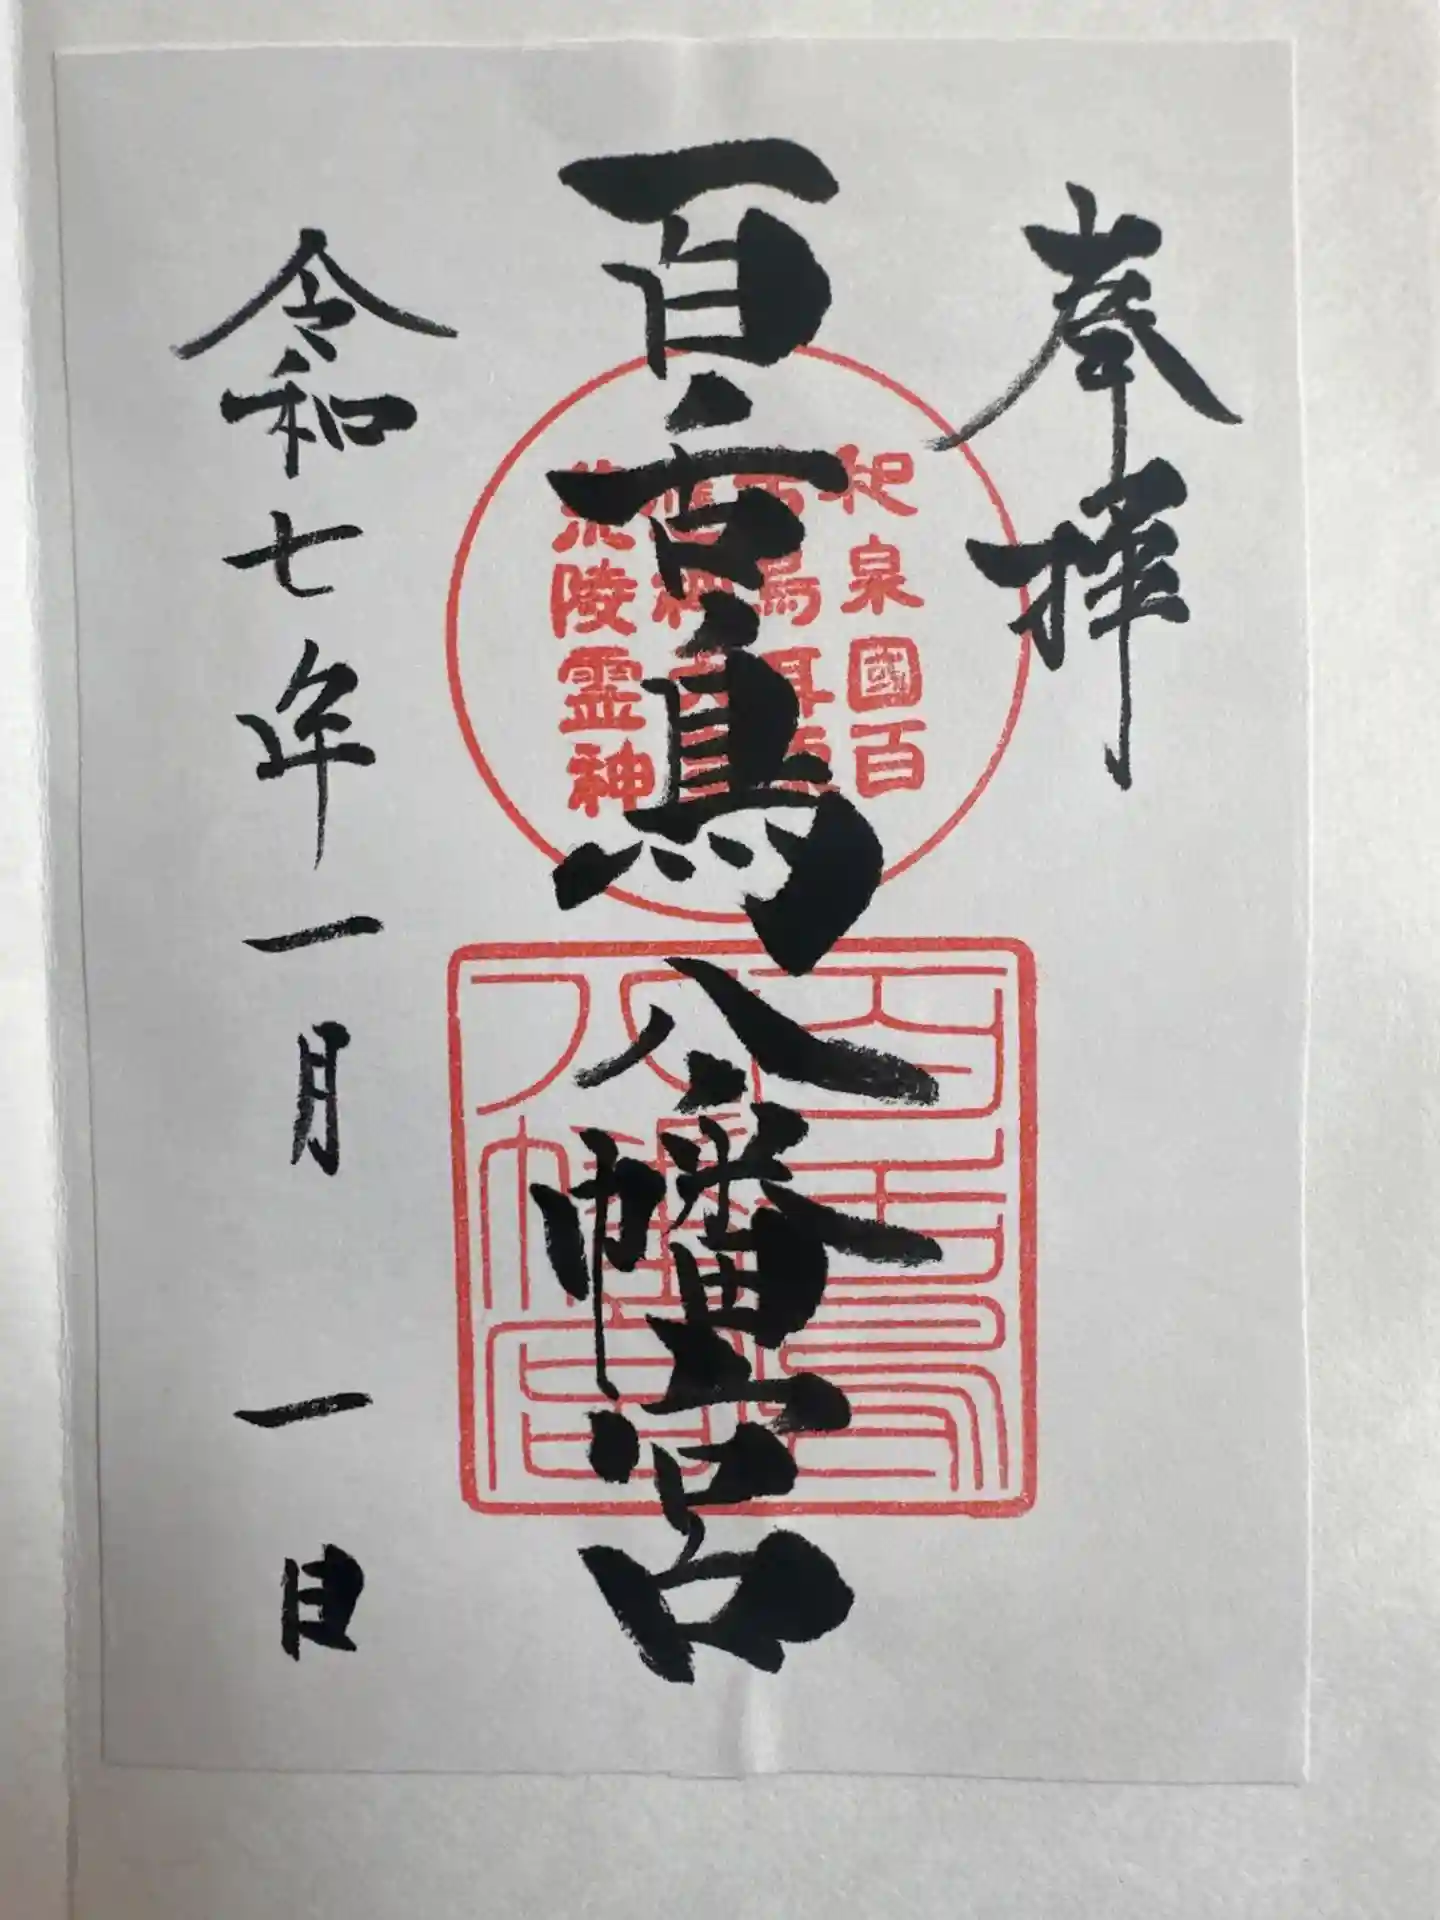 奉拝
百舌鳥八幡宮
令和七年一月一日
和泉國百
舌鳥耳原
陵霊神
百舌鳥
八幡宮